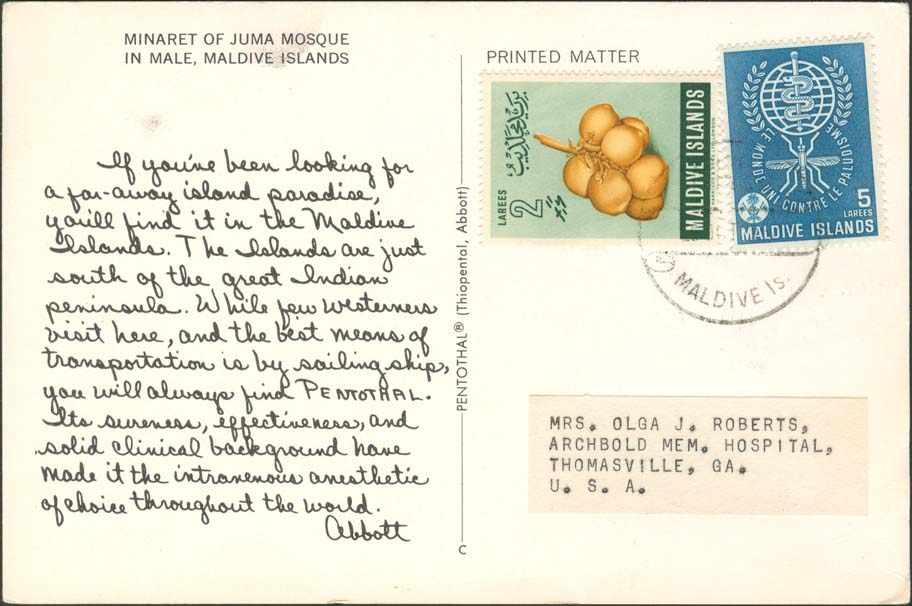 MINARET OF JUMA MOSQUE
IN MALE, MALDIVE ISLANDS
If you've been looking for
a far-away island paradise,
you'll find it in the Maldive
Islands. The Islands are just
south of the great Indian
peninsula. While few westerners
visit here, and the best means of
transportation is by sailing ship,
you will always find PENTOTHAL.
Its sureness, effectiveness, and
solid clinical background have
made it the intravenous anesthetic
of choice throughout the world.
Abbott
PENTOTHAL® (Thiopental, Abbott)
C
PRINTED MATTER
2
LAREES
MALDIVE ISLANDS
LE MONDE UNI CONTRE LE PALUDISME
5
LAREES
MALDIVE ISLANDS
MALDIVE IS.
MRS. OLGA J. ROBERTS,
ARCHBOLD MEM. HOSPITAL,
THOMASVILLE, GA.
U. S. A.